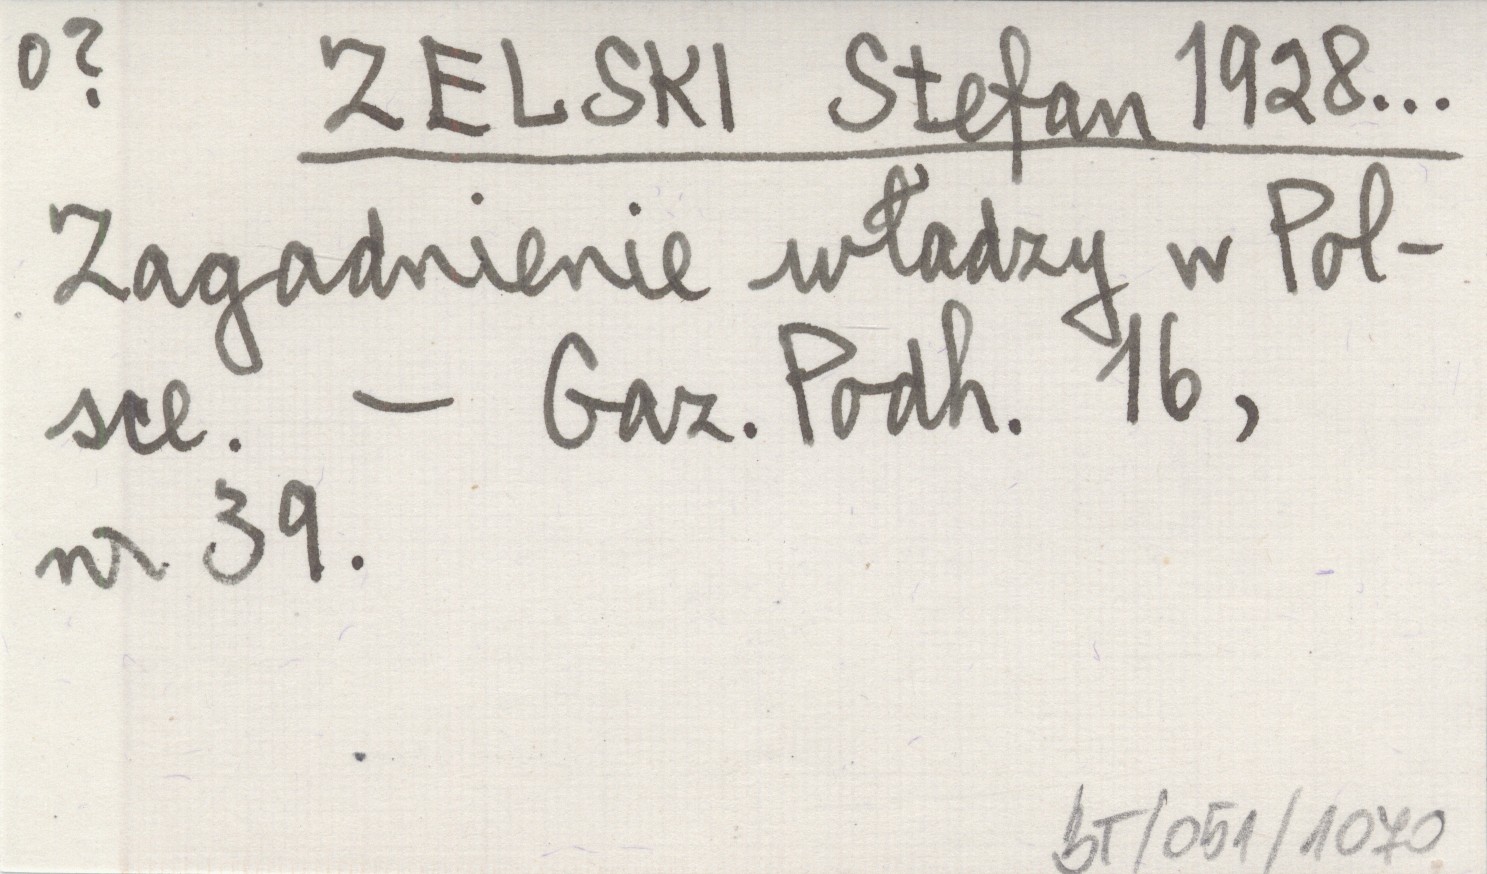 o?
ZELSKI Stefan 1928...
Zagadnienie władzy w Pol-
sce. — Gaz. Podh. 16,
nr 39.
BT/051/1070